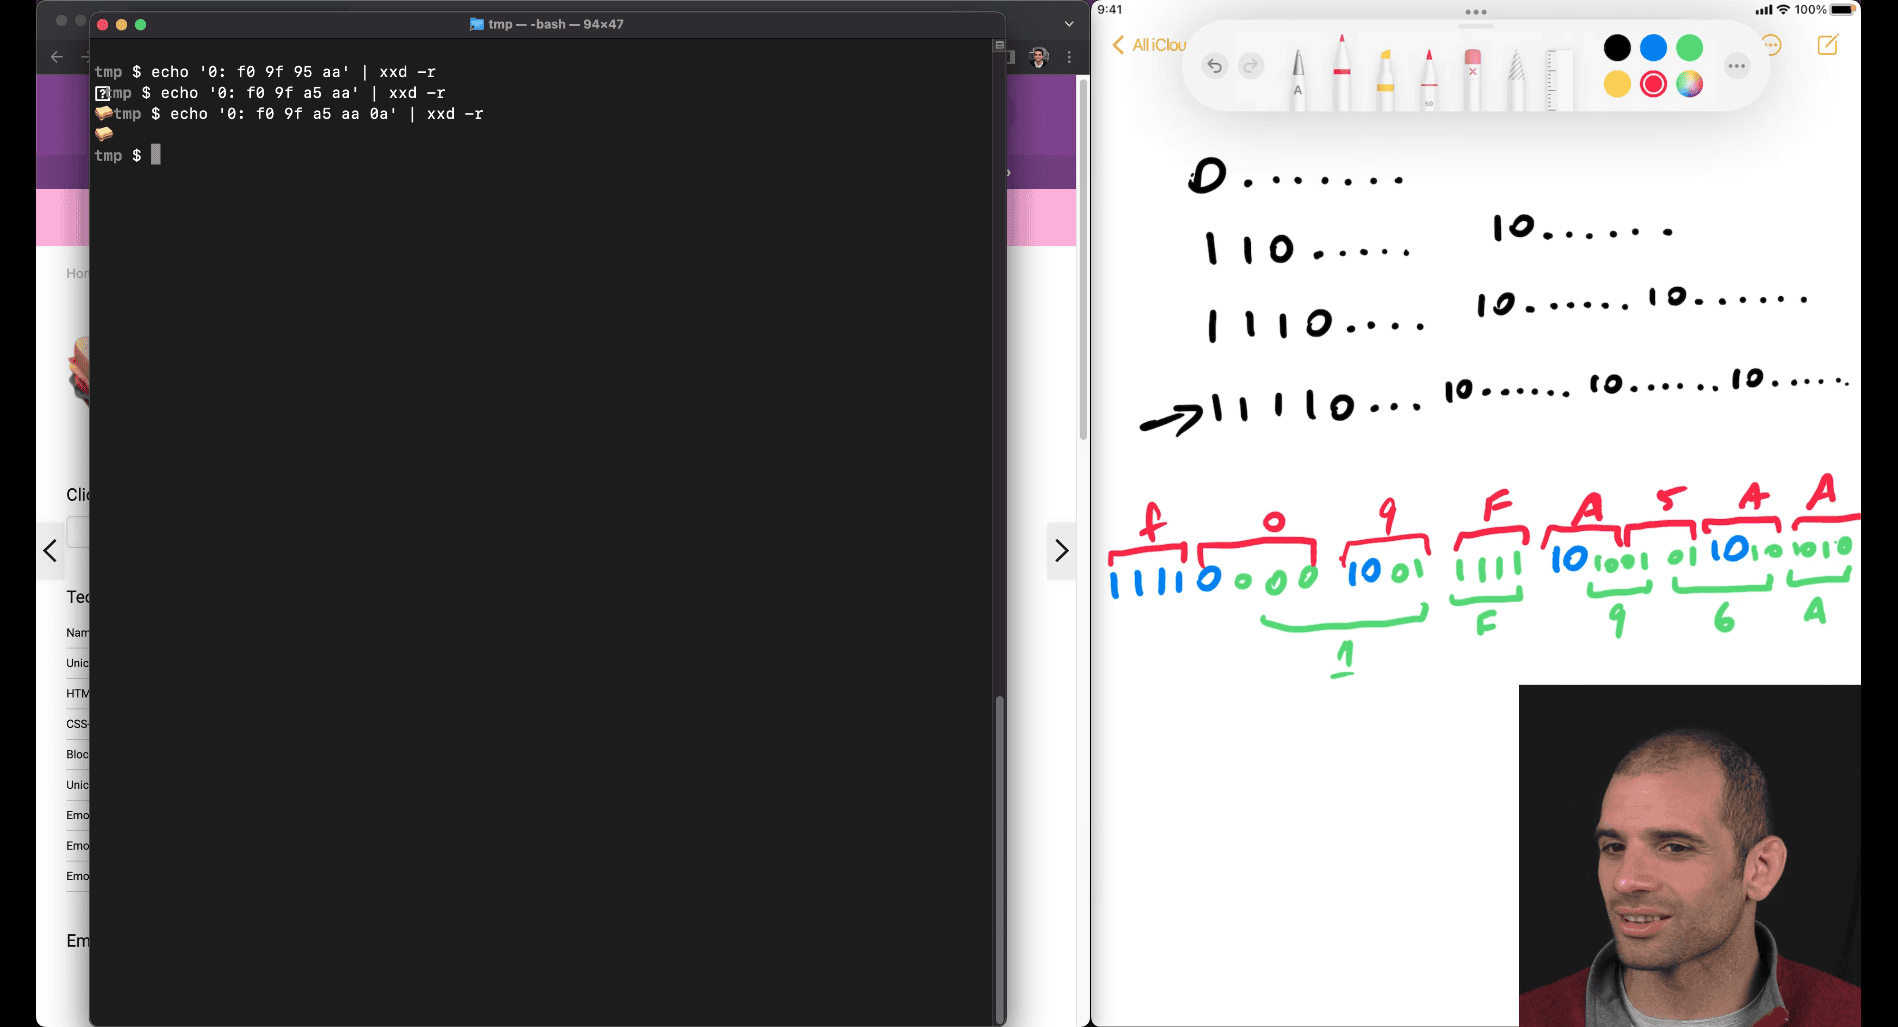 tmp — -bash — 94×47
tmp $ echo '0: f0 9f 95 aa' | xxd -r
tmp $ echo '0: f0 9f a5 aa' | xxd -r
🥪tmp $ echo '0: f0 9f a5 aa 0a' | xxd -r
🥪
tmp $
Hor
Clic
Tec
Nam
Unic
HTM
CSS-
Bloc
Unic
Emo
Emo
Emo
Em
9:41
100%
All iClou
A
50
0.......
110..... 10......
1110.... 10......10......
→11110... 10......10......10......
f 0 9 F A 5 A A
11110 000 1001 1111 10 1001 01 10 10 1010
1 F 9 6 A